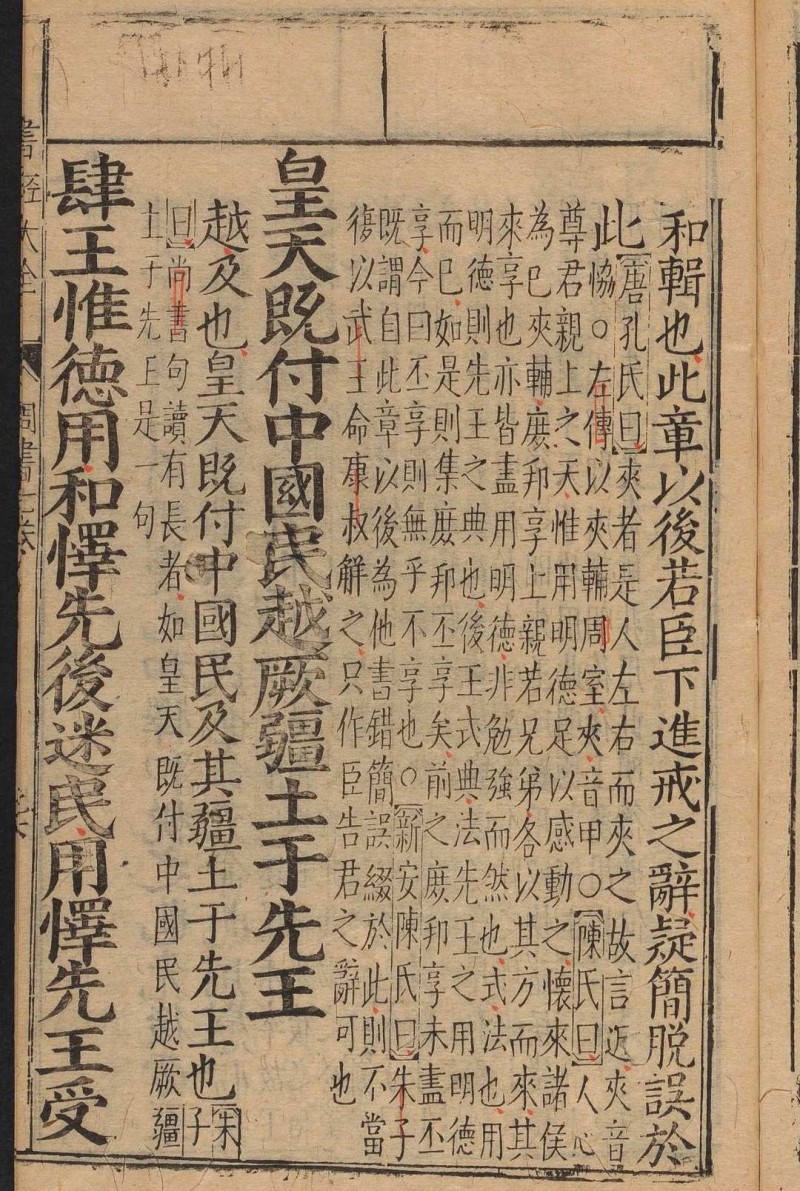 和輯也此章以後若臣下進戒之辭疑簡脫誤於
此
唐孔氏曰夾者是人左右而夾之故言近夾音
協○左傳以夾輔周室夾音甲○陳氏曰人心
尊君親上之天惟用明德足以感動之懷來諸侯
為已夾輔庶邦享上親若兄弟各以其方而來其
來享也亦皆盡用明德非勉強而然也式法也用
明德則先王之典也後王式典法先王之用明德
而已如是則集庶邦丕享矣前之庶邦享未盡丕
享今曰丕享則無乎不享也○新安陳氏曰朱子
既謂自此章以後為他書錯簡誤綴於此則不當
復以武王命康叔解之只作臣告君之辭可也
皇天既付中國民越厥疆土于先王
越及也皇天既付中國民及其疆土于先王也朱子
曰尚書句讀有長者如皇天既付中國民越厥疆
土于先王是一句
肆王惟德用和懌先後迷民用懌先王受
書經大全
周書